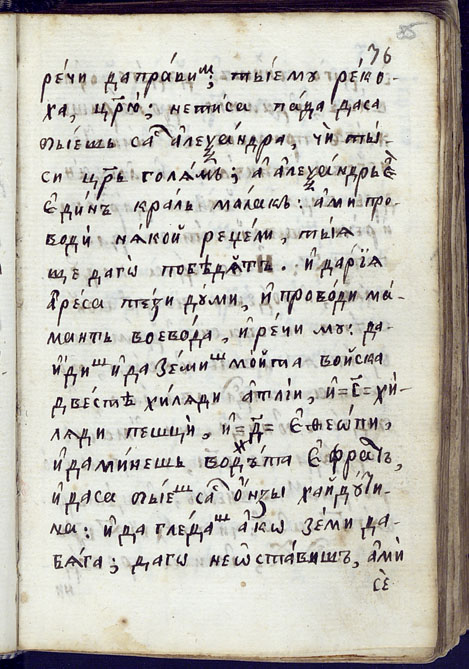 76
85
рѣчи да пра́вим; тые му реко-
ха, цр҃ю; не ти са па́да да са
биешь са алеѯа́ндра, чи ты́
си цр҃ь голѧ́мъ; а алеѯа́ндрь є҆
є҆ди́нъ краль ма́лакъ: ами про-
води нѧ́кой рецели, тыѧ
ще да гѡ победѧ́тъ. и҆ да́рїѧ
а҆реса те́зи ду́ми, и҆ прово́ди ма-
мантъ воево́да, и҆ рѣчи му: да
и҆́диш и҆ да зе́миш мо́йта войска
две́стѣ хи́лѧди атлїи, и҆ =с҃= хи́-
лѧди пешци, и҆ =д҃= є҆ѳеѡ́пи,
и҆ да ми́нешь во́дъта є҆фра́тъ,
и҆ да са биеш са ѻ҆нзы хайду́ти-
на: и҆ да гле́даш а҆кѡ зе́ми да
бѧ́га; да гѡ не ѡ҆ста́вишъ, ами
се